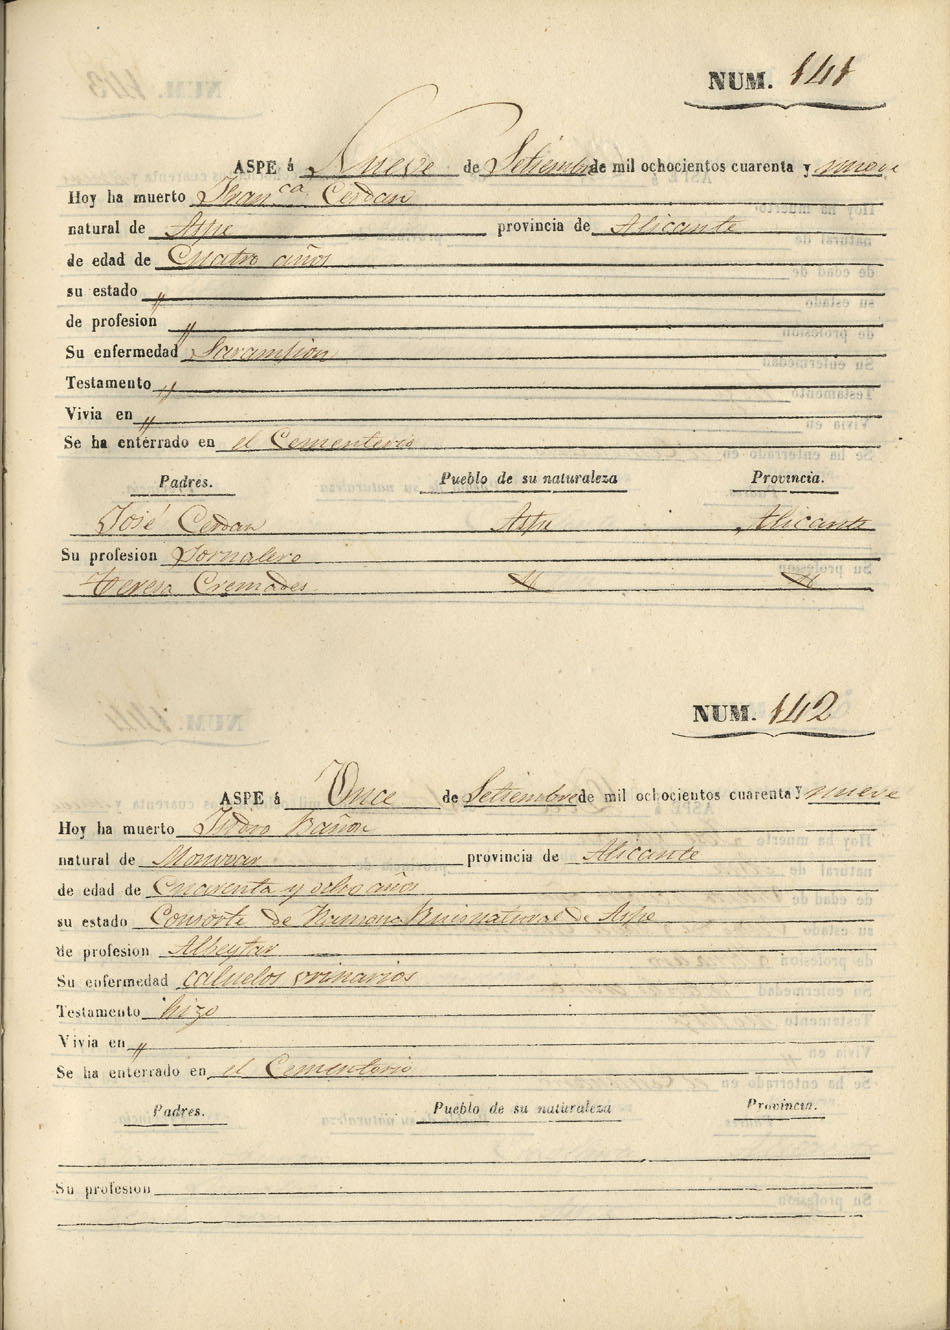 NUM. 141
ASPE á Nueve de Setiembre de mil ochocientos cuarenta y nueve
Hoy ha muerto Fran.ca Cerdan
natural de Aspe provincia de Alicante
de edad de Cuatro años
su estado "
de profesion "
Su enfermedad Sarampion
Testamento "
Vivia en "
Se ha enterrado en el Cementerio
Padres. Pueblo de su naturaleza Provincia.
José Cerdan Aspe Alicante
Su profesion Jornalero
Teresa Cremades
NUM. 142
ASPE á Once de Setiembre de mil ochocientos cuarenta y nueve
Hoy ha muerto Isidro Bañon
natural de Monovar provincia de Alicante
de edad de Cuarenta y ocho años
su estado Consorte de Ramona Ruis natural de Aspe
de profesion Albeytar
Su enfermedad calculos orinarios
Testamento hizo
Vivia en "
Se ha enterrado en el Cementerio
Padres. Pueblo de su naturaleza Provincia.
Su profesion